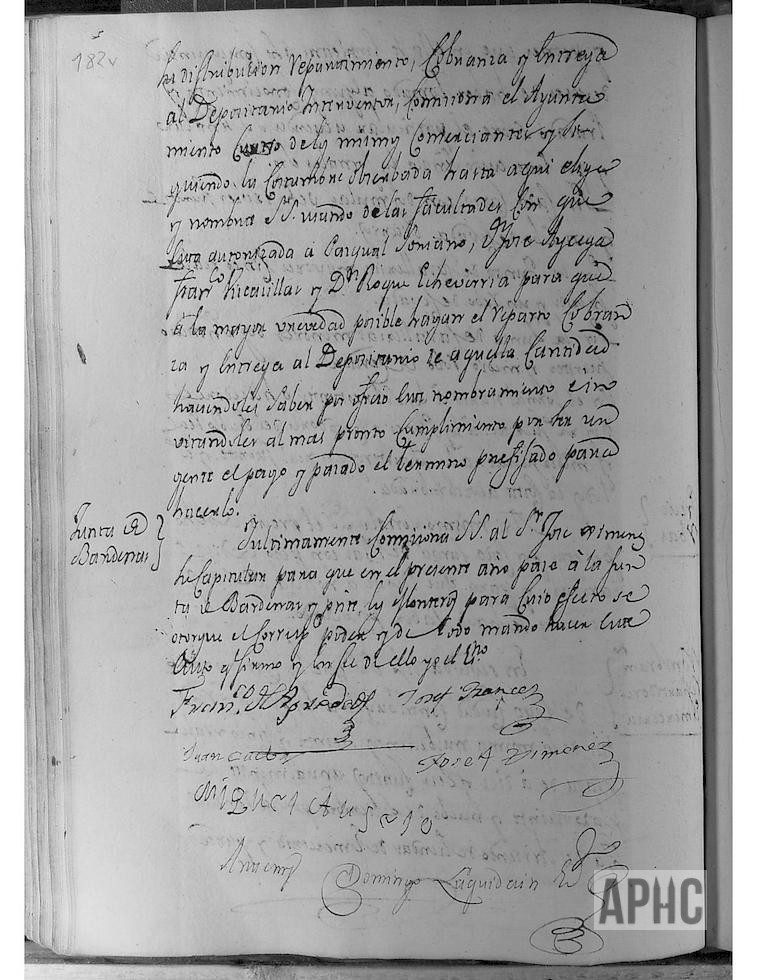 182v
su distribucion Repartimiento, Cobranza y Entrega
al Depositario Interventor, comisiona el Ayunta
miento Cuarto de los mismos y si
guiendo la Costumbre obserbada hasta aqui elige
y nombra SS. usando de las facultades con que
esta autorizada a Pasqual Soriano, Dn Jose Ayesa
Franco Ricavillar y Dn Roque Echeverria para que
a la mayor vrevedad posible hagan el Reparto Cobran
za y Entrega al Depositario de aquella Cantidad
haciendoles saber por oficio este nombramiento e in
vitandoles al mas pronto Cumplimiento por ser ur
gente el pago y pasado el termino prefisado para
hacerlo.
Junta de
Bardenas
Y ultimamente Comisiona SS. al Sr Jose Ximenez
de Capitulan para que en el presente año pase à la Jun
ta de Bardenas y los Monteros para Cuio efecto se
otorgue el Corresp.te poder y de todo mando hacer este
Auto q firmo y en fee de ello yo el Esno
Jose Frances
Juan Castor
Jose A Ximenez
Miguel Ausejo
Antemi
Domingo Laquidain Eno
APHC